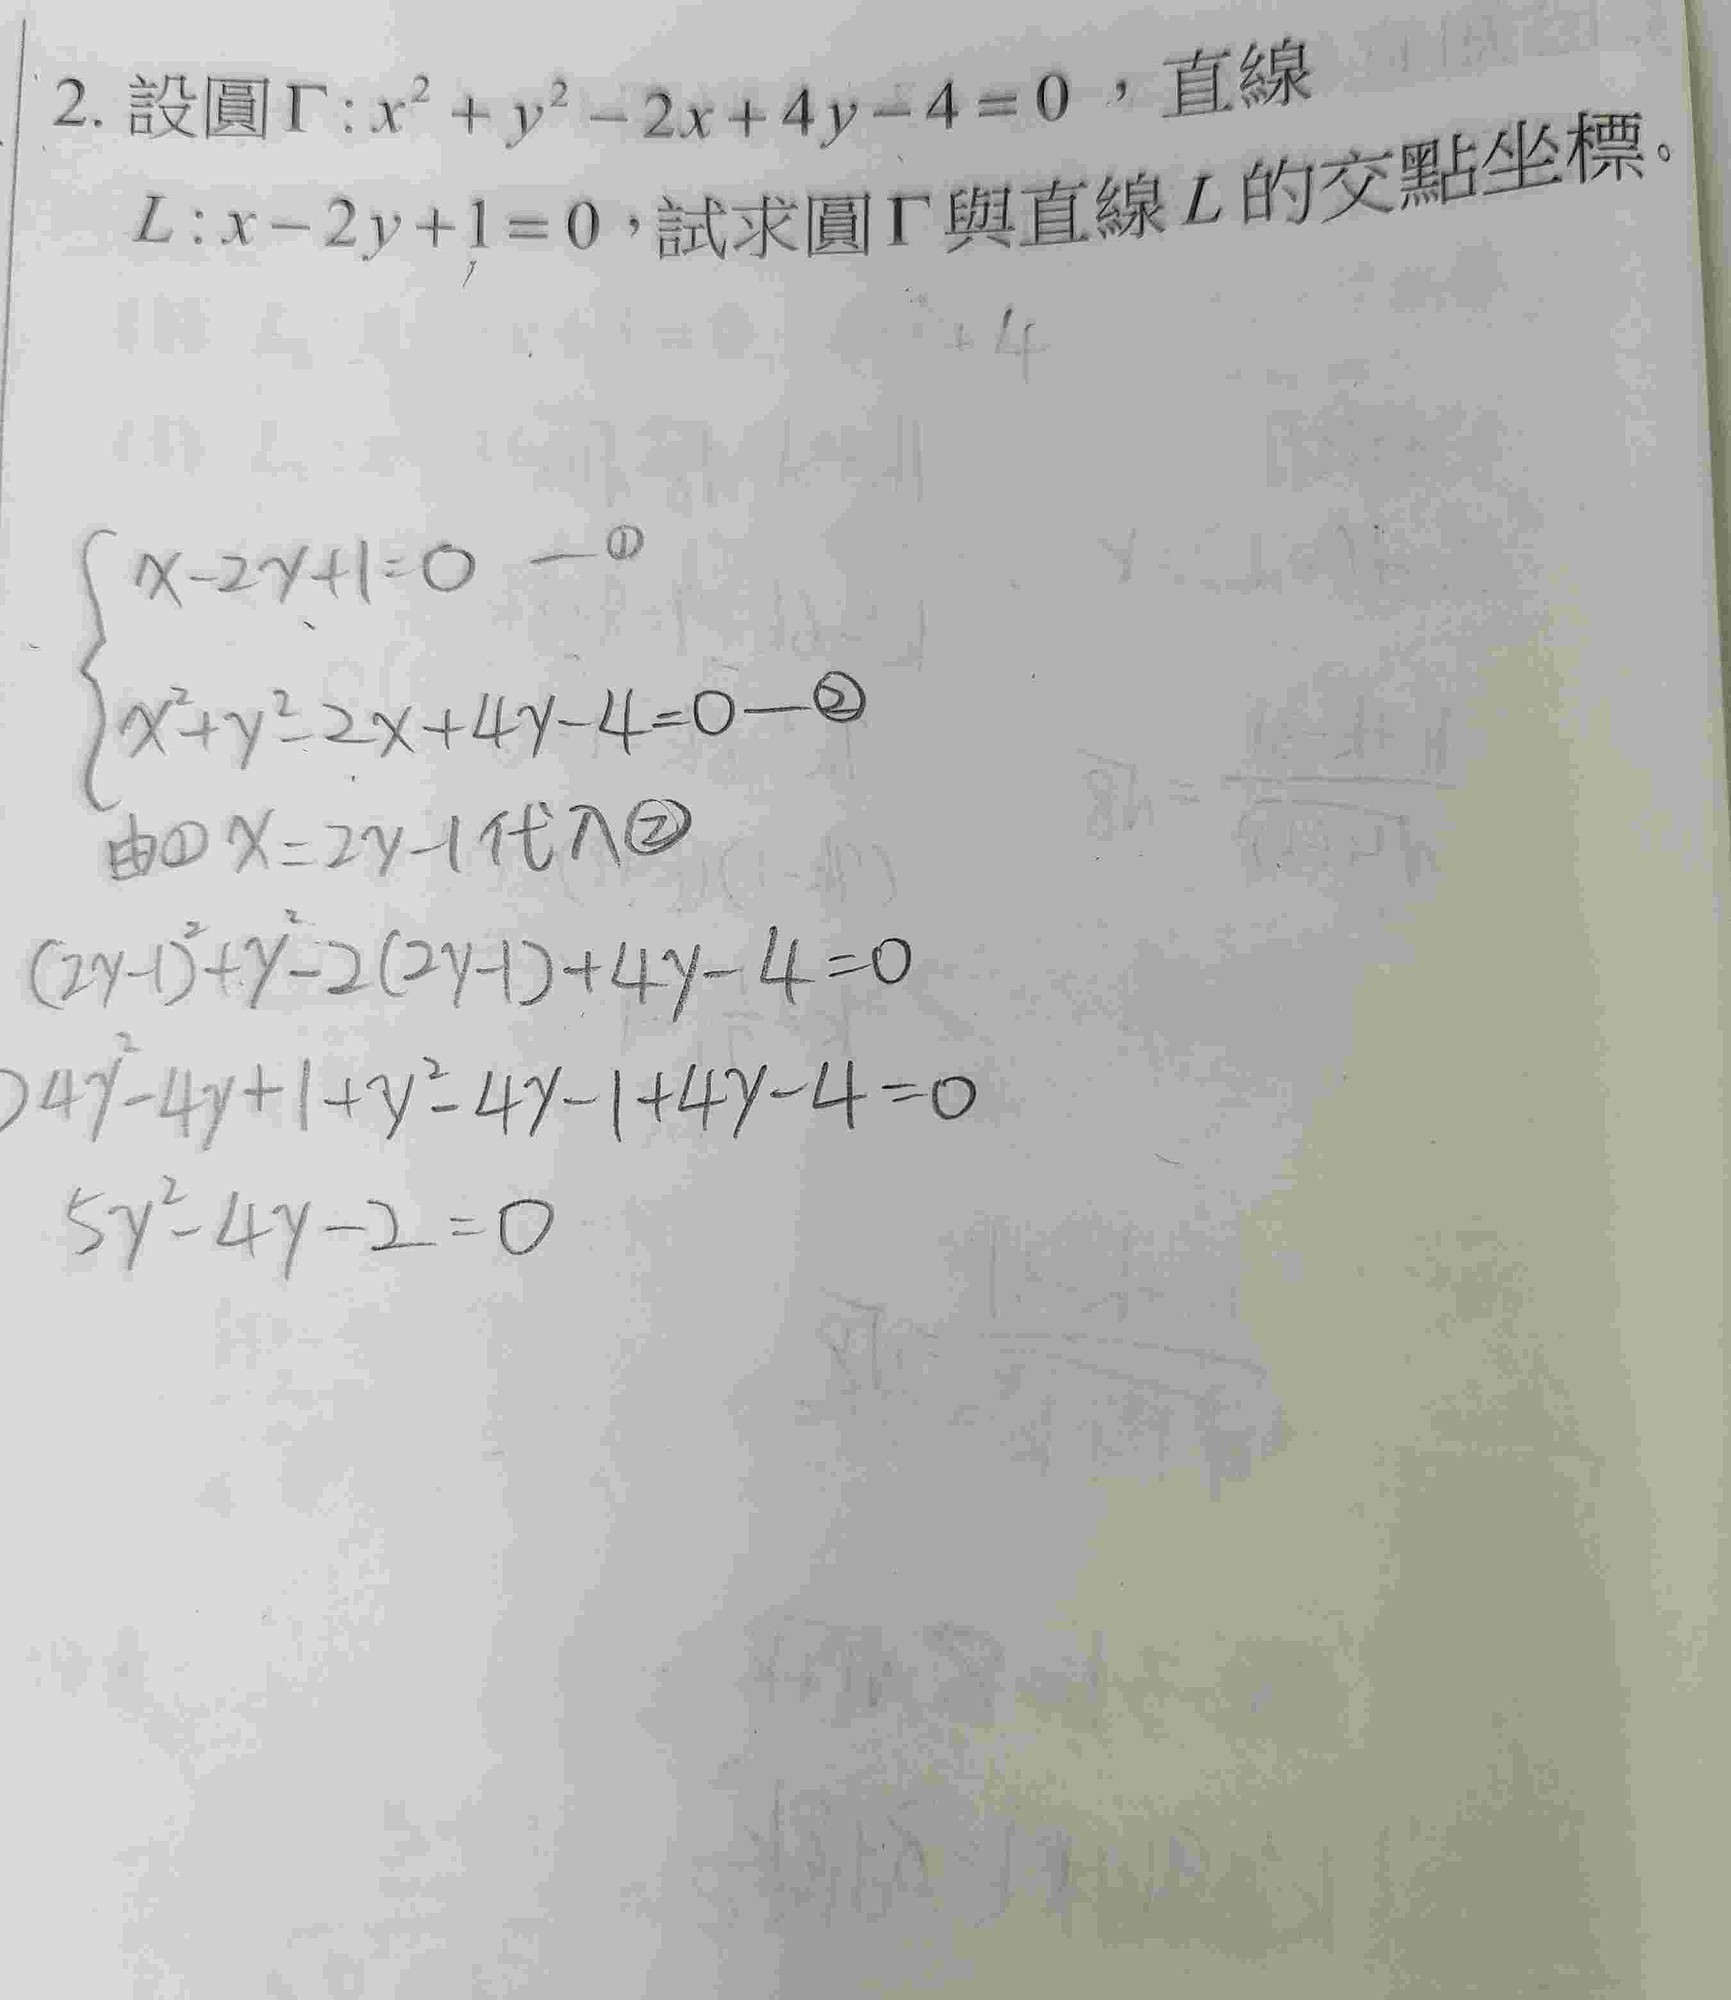 2. 設圓Γ:x² + y² − 2x + 4y − 4 = 0，直線
L:x − 2y + 1 = 0，試求圓Γ與直線L的交點坐標。
+4
x-2y+1=0 —①
x²+y²-2x+4y-4=0—②
由①x=2y-1代入②
(2y-1)²+y²-2(2y-1)+4y-4=0
4y²-4y+1+y²-4y-1+4y-4=0
5y²-4y-2=0